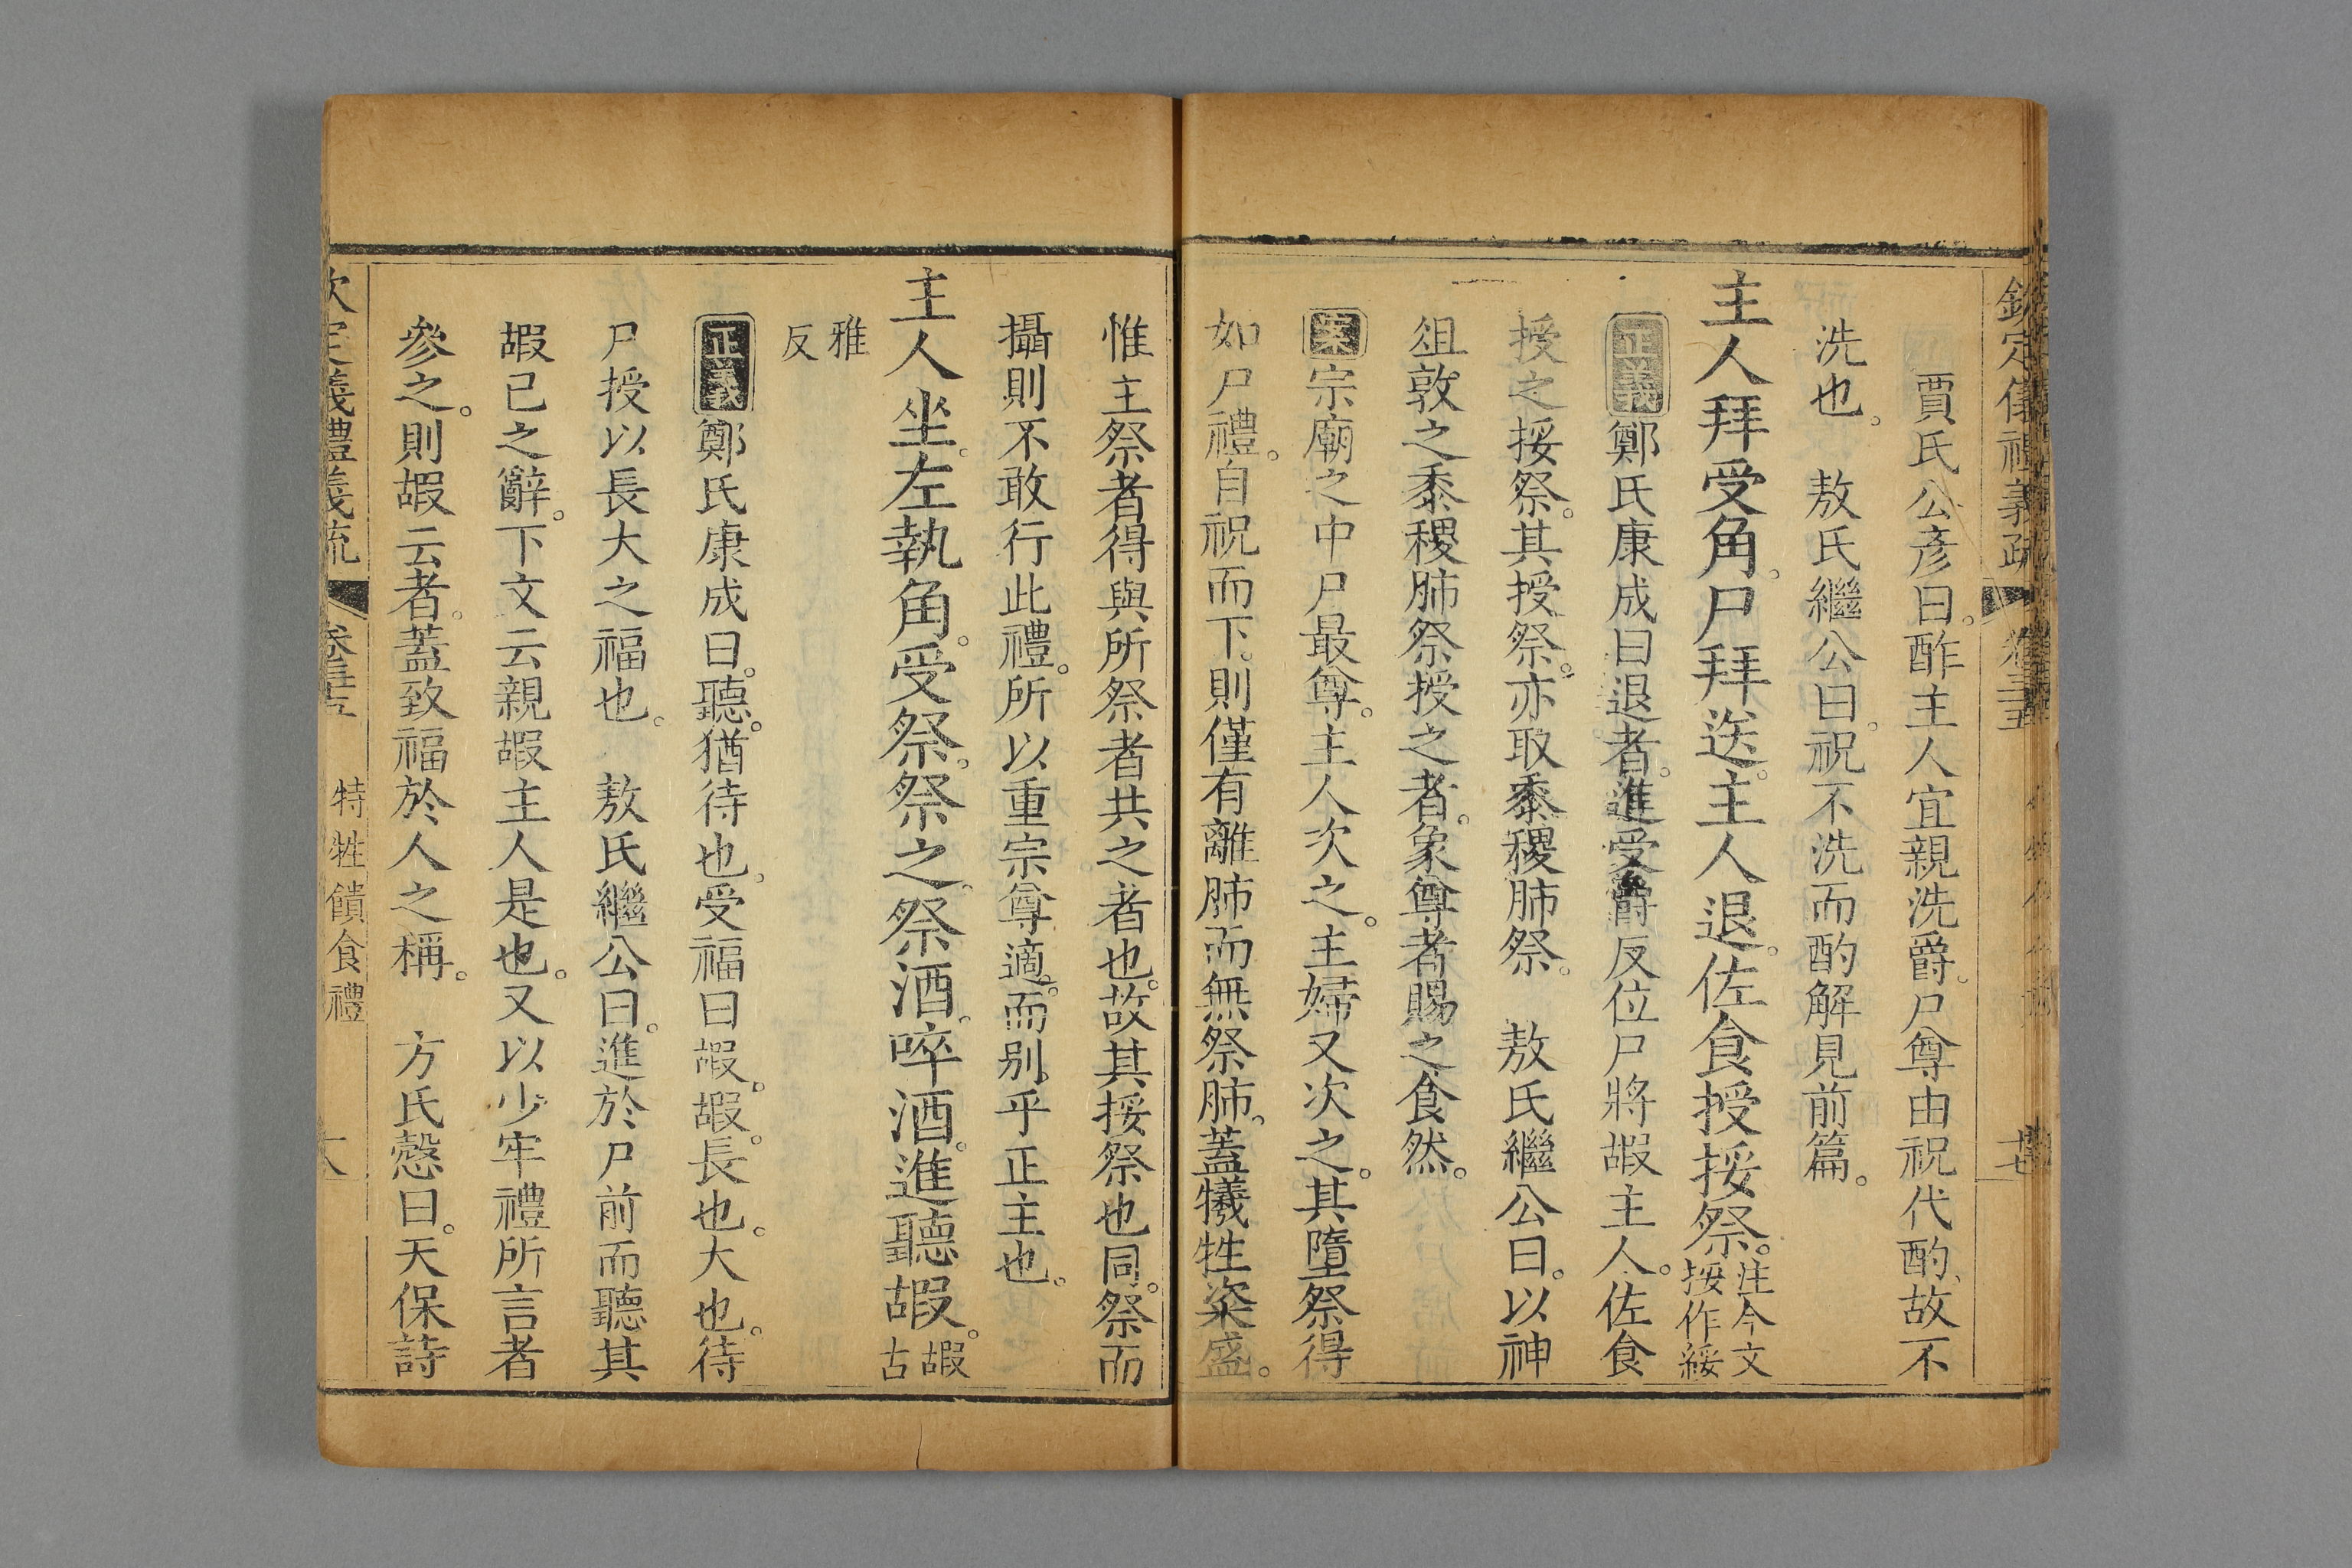 欽定儀禮義疏 卷三十五 十七
賈氏公彥曰。酢主人宜親洗爵。尸尊由祝代酌、故不
洗也。 敖氏繼公曰。祝不洗而酌解見前篇。
主人拜受角。尸拜送。主人退。佐食授挼祭。注今文挼作綏
正義鄭氏康成曰退者。進受爵反位尸將嘏主人。佐食
授之挼祭。其授祭。亦取黍稷肺祭。 敖氏繼公曰。以神
俎敦之黍稷肺祭授之者。象尊者賜之食然。
案宗廟之中尸最尊。主人次之。主婦又次之。其墮祭得
如尸禮。自祝而下。則僅有離肺而無祭肺。蓋犧牲粢盛。
惟主祭者得與所祭者共之者也。故其挼祭也同。祭而
攝則不敢行此禮。所以重宗尊適。而别乎正主也。
主人坐。左執角。受祭。祭之。祭酒。啐酒。進聽嘏。嘏古
雅反
正義鄭氏康成曰。聽。猶待也。受福曰嘏。嘏。長也。大也。待
尸授以長大之福也。 敖氏繼公曰。進於尸前而聽其
嘏己之辭。下文云親嘏主人是也。又以少牢禮所言者
參之。則嘏云者。蓋致福於人之稱。 方氏慤曰。天保詩
欽定儀禮義疏 卷三十五 特牲饋食禮 十八